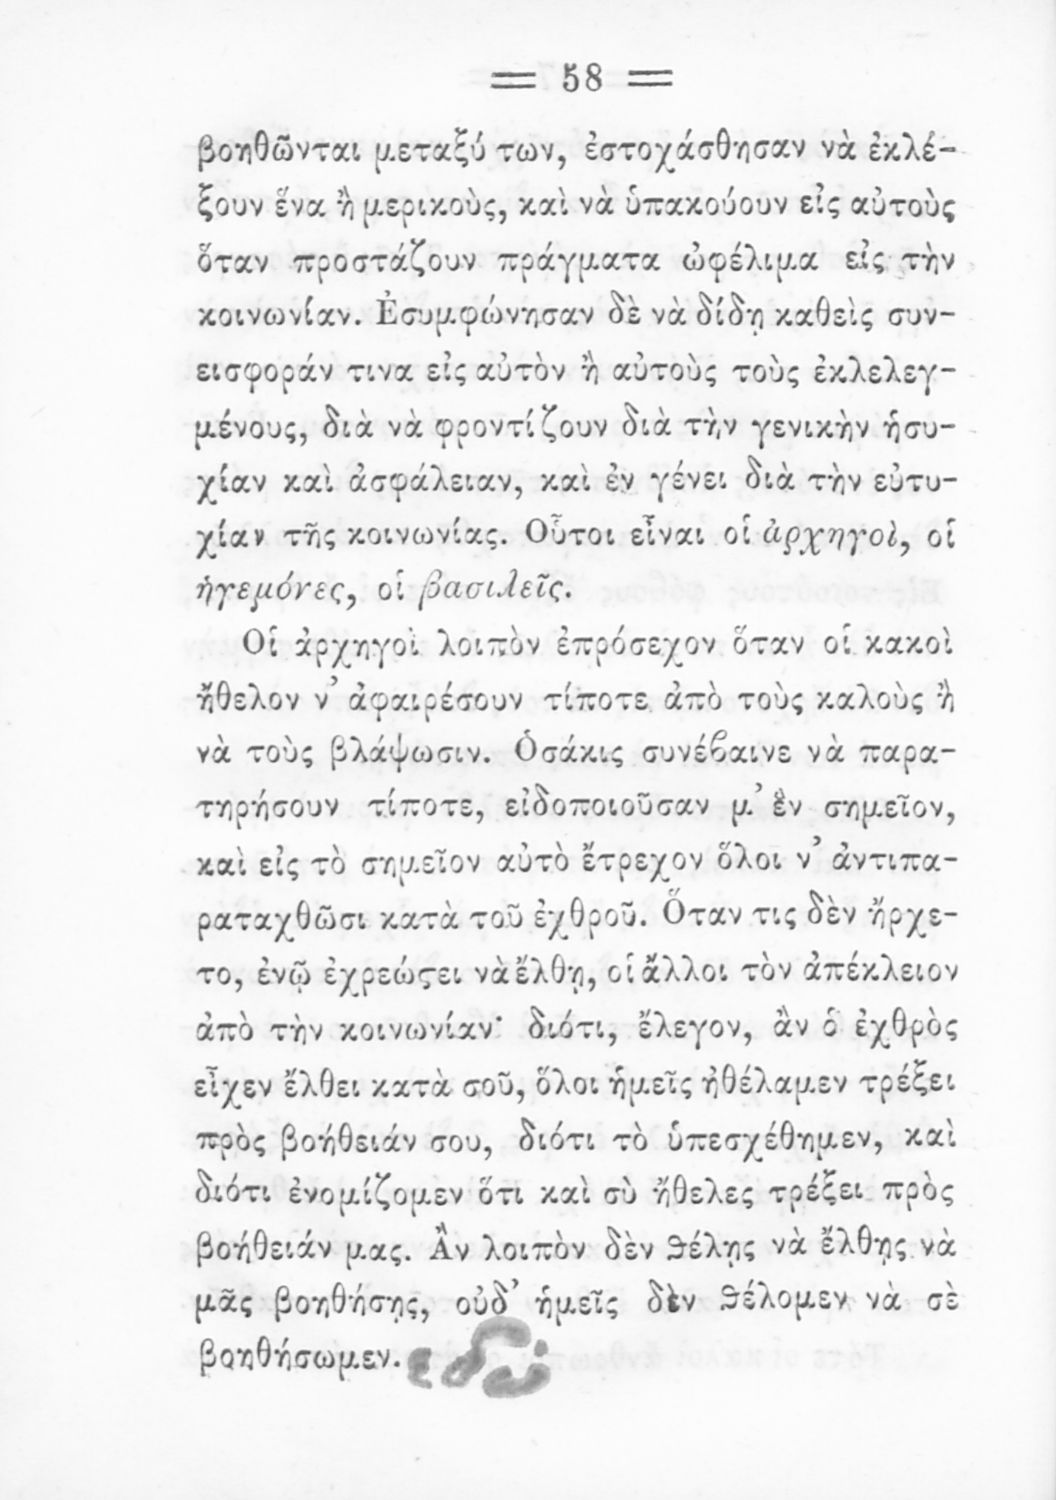 = 58 =
βοηθῶνται μεταξύ των, ἐστοχάσθησαν νὰ ἐκλέ-
ξουν ἕνα ἢ μερικοὺς, καὶ νὰ ὑπακούουν εἰς αὐτοὺς
ὅταν προστάζουν πράγματα ὠφέλιμα εἰς τὴν
κοινωνίαν. Ἐσυμφώνησαν δὲ νὰ δίδῃ καθεὶς συν-
εισφοράν τινα εἰς αὐτὸν ἢ αὐτοὺς τοὺς ἐκλελεγ-
μένους, διὰ νὰ φροντίζουν διὰ τὴν γενικὴν ἡσυ-
χίαν καὶ ἀσφάλειαν, καὶ ἐν γένει διὰ τὴν εὐτυ-
χίαν τῆς κοινωνίας. Οὗτοι εἶναι οἱ ἀρχηγοὶ, οἱ
ἡγεμόνες, οἱ βασιλεῖς.
Οἱ ἀρχηγοὶ λοιπὸν ἐπρόσεχον ὅταν οἱ κακοὶ
ἤθελον ν’ ἀφαιρέσουν τίποτε ἀπὸ τοὺς καλοὺς ἢ
νὰ τοὺς βλάψωσιν. Ὁσάκις συνέϐαινε νὰ παρα-
τηρήσουν τίποτε, εἰδοποιοῦσαν μ’ ἓν σημεῖον,
καὶ εἰς τὸ σημεῖον αὐτὸ ἔτρεχον ὅλοι ν’ ἀντιπα-
ραταχθῶσι κατὰ τοῦ ἐχθροῦ. Ὅταν τις δὲν ἤρχε-
το, ἐνῷ ἐχρεώϛει νὰ ἔλθῃ, οἱ ἄλλοι τὸν ἀπέκλειον
ἀπὸ τὴν κοινωνίαν· διότι, ἔλεγον, ἂν ὁ ἐχθρὸς
εἶχεν ἔλθει κατὰ σοῦ, ὅλοι ἡμεῖς ἠθέλαμεν τρέξει
πρὸς βοήθειάν σου, διότι τὸ ὑπεσχέθημεν, καὶ
διότι ἐνομίζομεν ὅτι καὶ σὺ ἤθελες τρέξει πρὸς
βοήθειάν μας. Ἂν λοιπὸν δὲν ϑέλῃς νὰ ἔλθῃς νὰ
μᾶς βοηθήσῃς, οὐδ’ ἡμεῖς δὲν ϑέλομεν νὰ σὲ
βοηθήσωμεν. εδώ